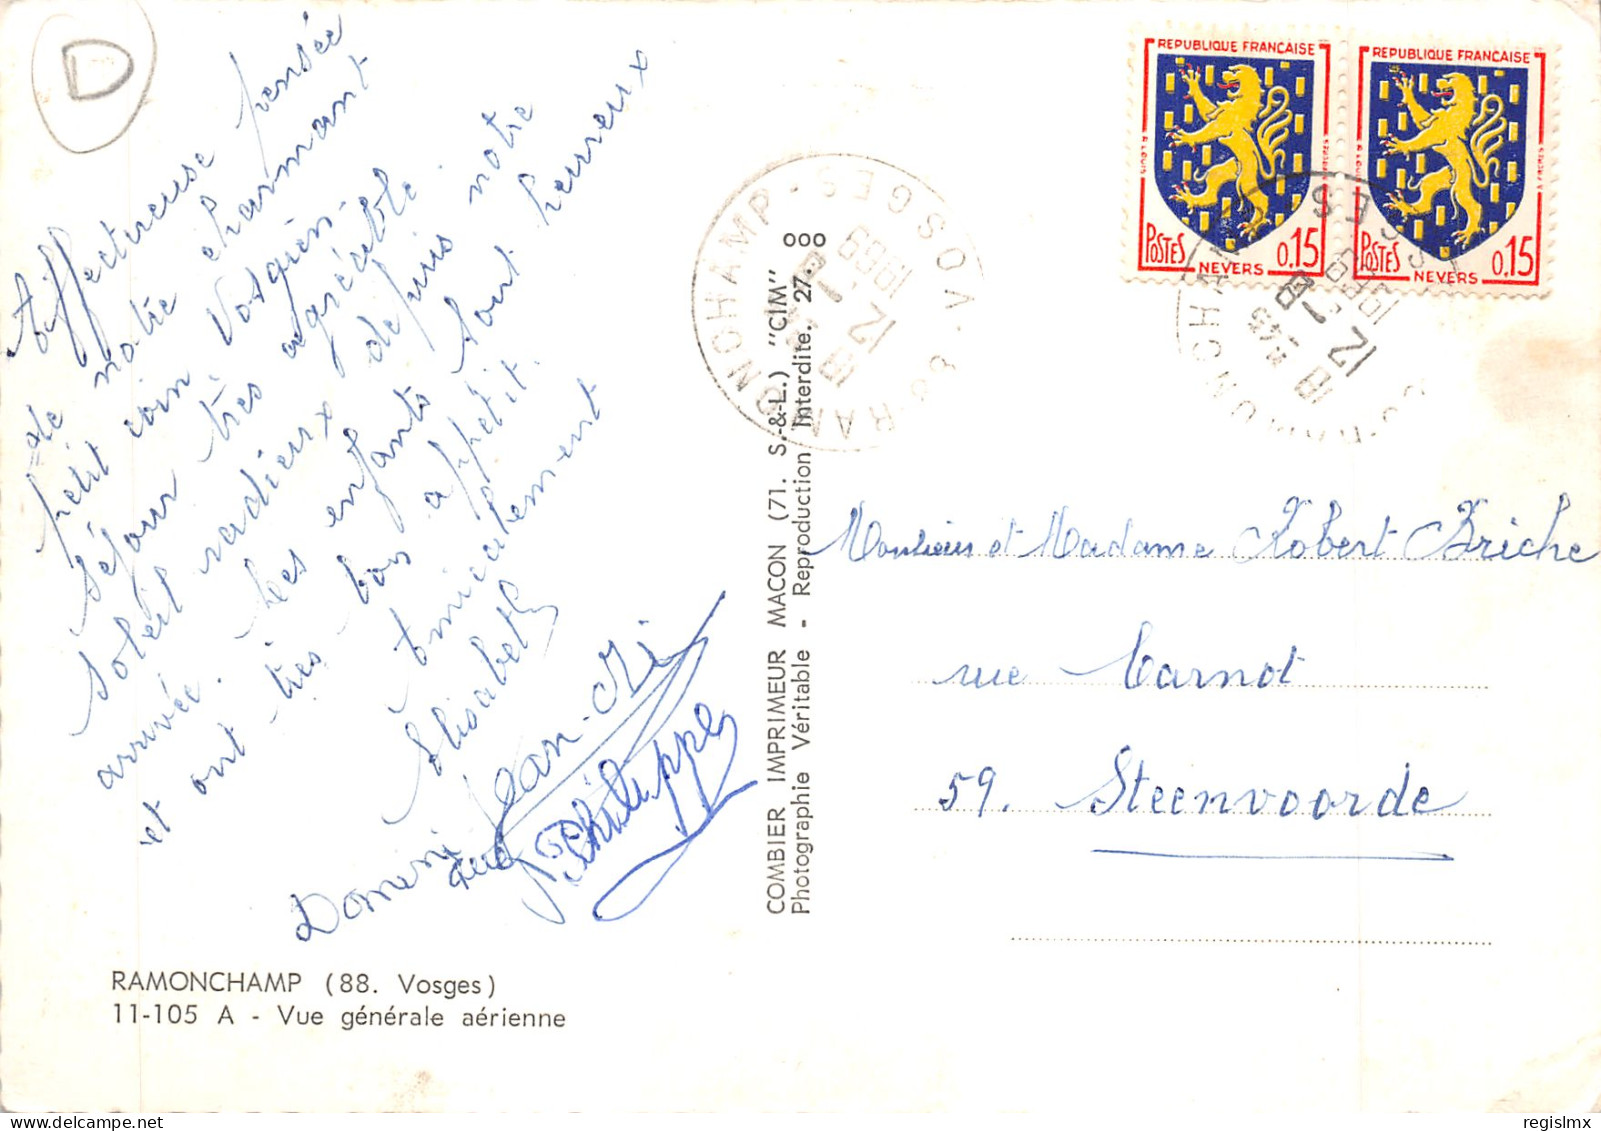 D
Affectueuse pensée
de notre charmant
petit coin Vosgien.
Séjour très agréable
Soleil radieux depuis notre
arrivée. Les enfants sont heureux
et ont très bon appétit.
Amicalement
Elisabeth
Jean-
Philippe
Dominique
RAMONCHAMP (88. Vosges)
11-105 A - Vue générale aérienne
COMBIER IMPRIMEUR MACON (71. S.-&-L.) "CIM"
Photographie Véritable - Reproduction Interdite. 27.
88 RAMONCHAMP - VOSGES
18 H
12-8
1969
REPUBLIQUE FRANÇAISE
POSTES
NEVERS
0,15
REPUBLIQUE FRANÇAISE
POSTES
NEVERS
0,15
18 H 45
12-8
1969
Monsieur et Madame Robert Briche
rue Carnot
59. Steenvoorde
regislmx